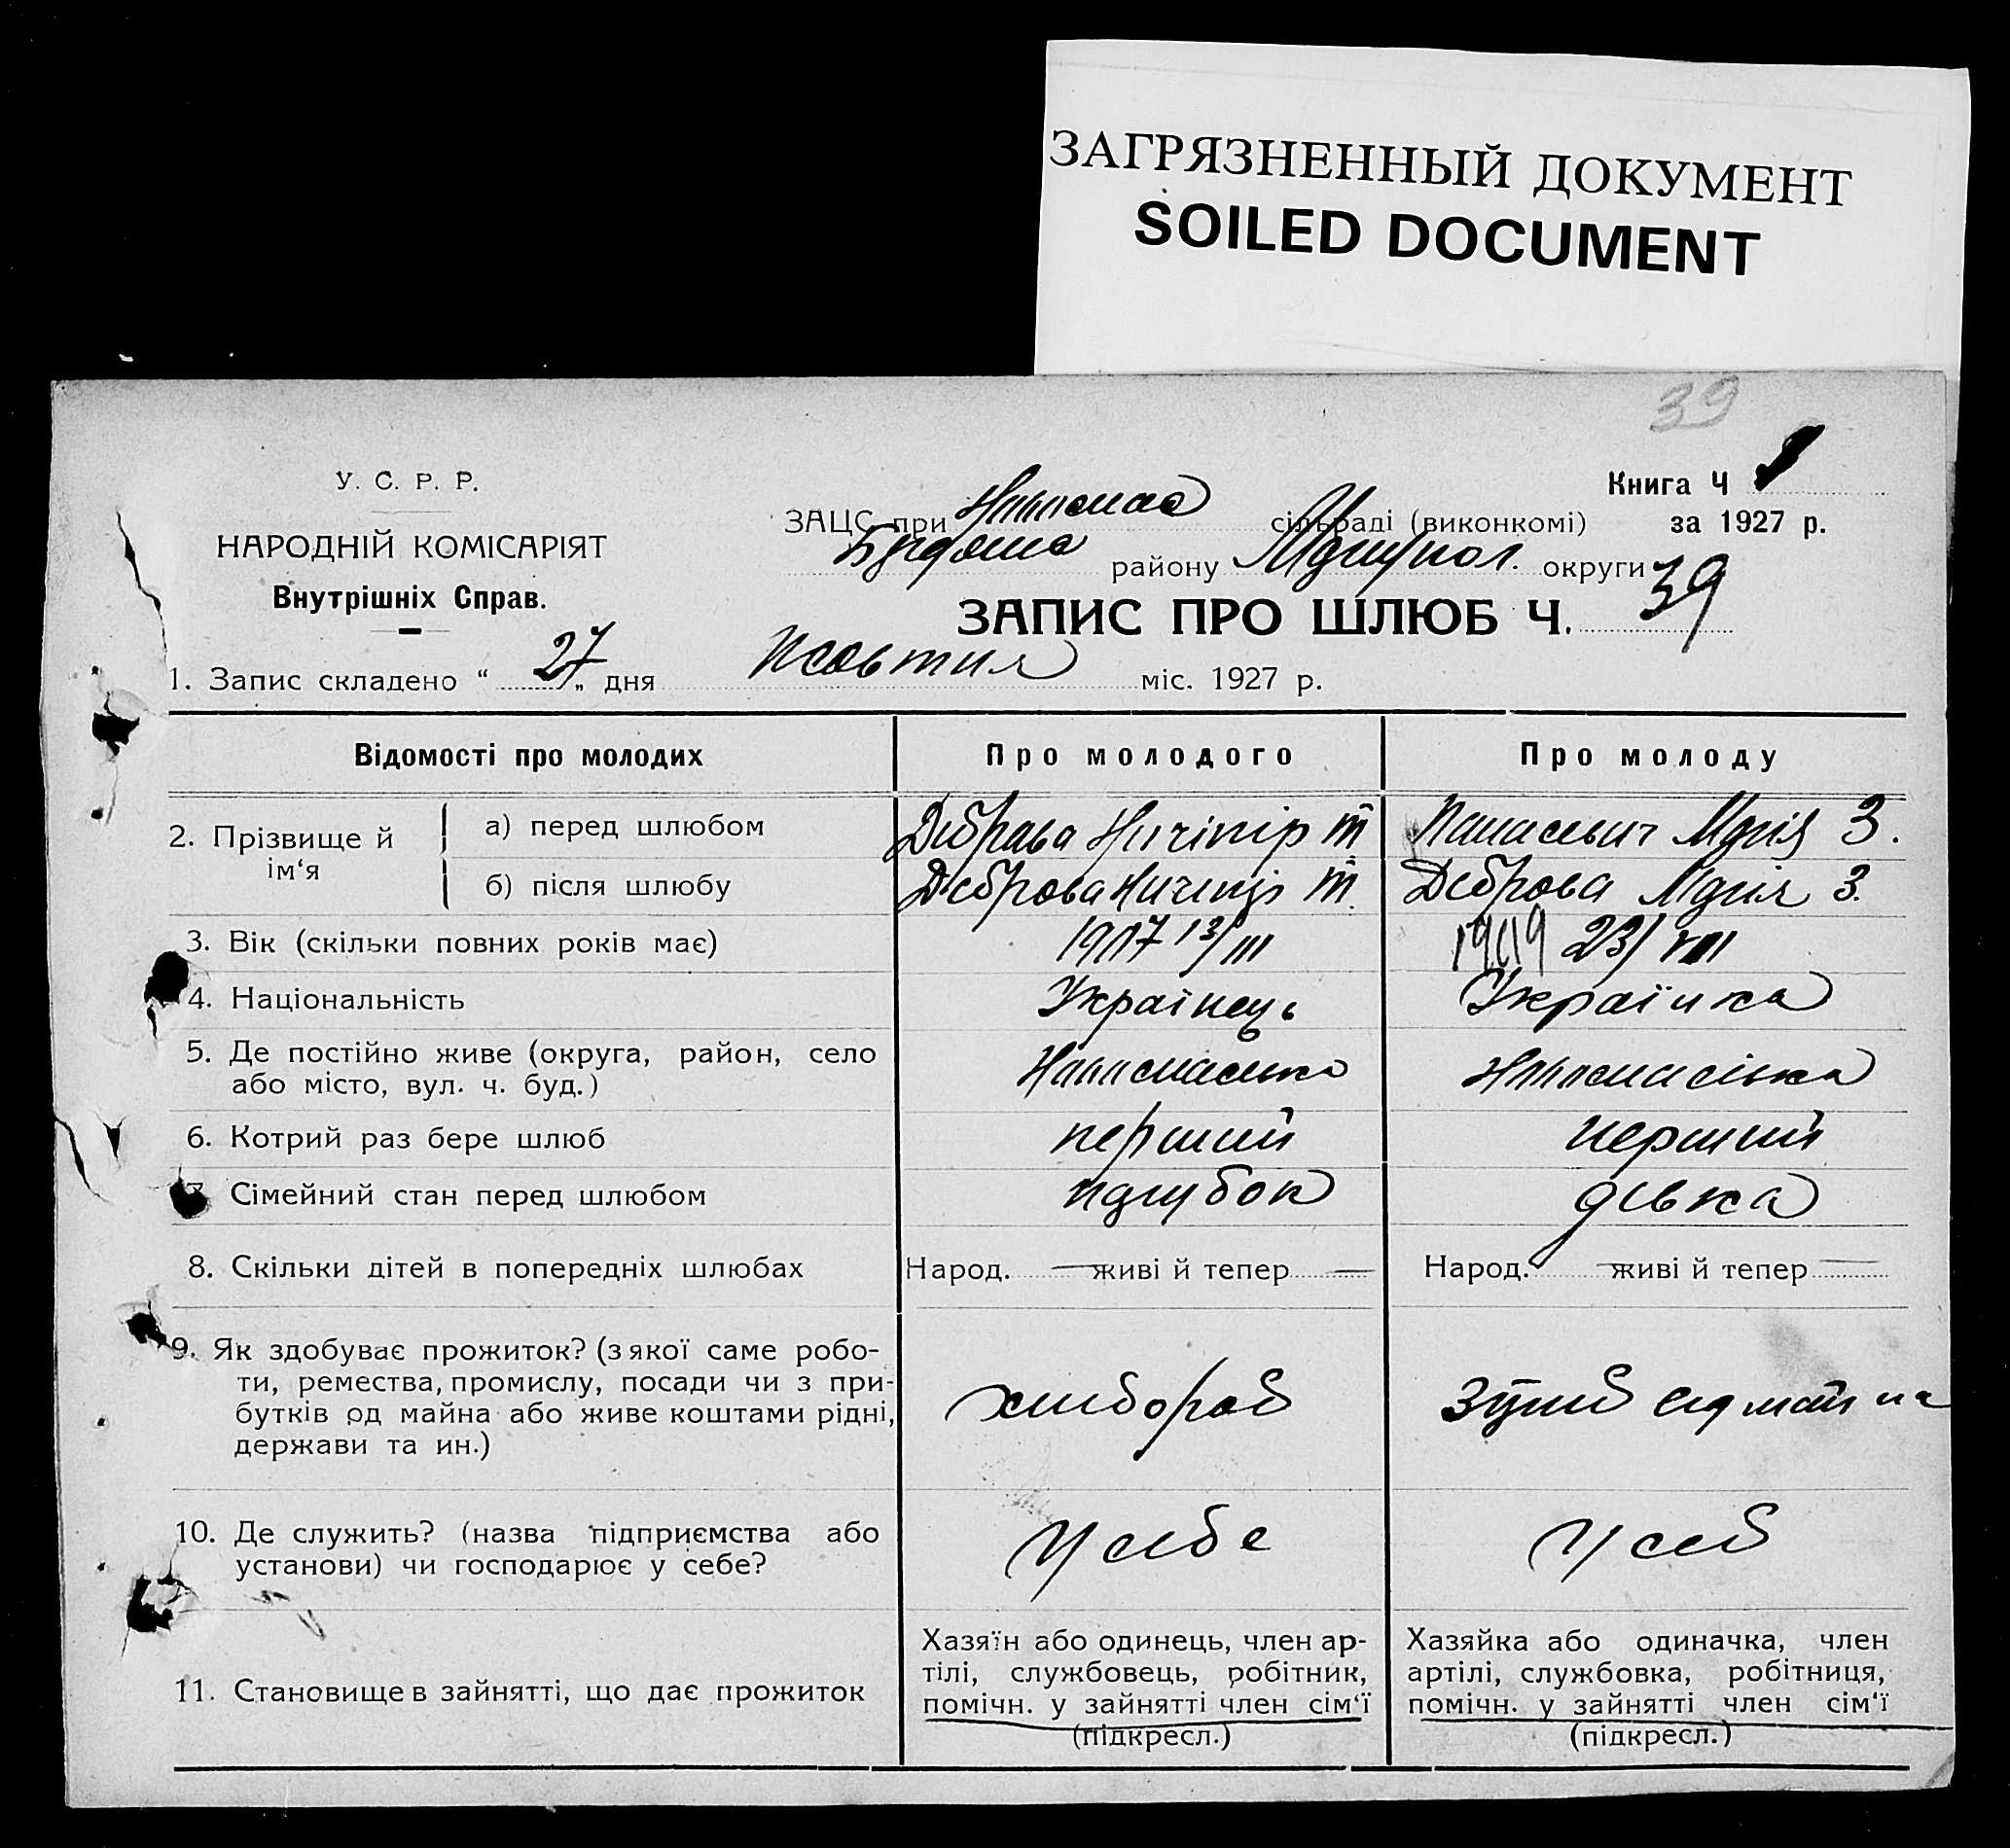 ЗАГРЯЗНЕННЫЙ ДОКУМЕНТ
SOILED DOCUMENT
39
У. С. Р. Р.
НАРОДНІЙ КОМІСАРІЯТ
Внутрішніх Справ.
Книга Ч
ЗАЦС при сільраді (виконкомі) за 1927 р.
району округи
ЗАПИС ПРО ШЛЮБ Ч. 39
1. Запис складено “ 27 „ дня Жовтня міс. 1927 р.
Відомості про молодих Про молодого Про молоду
2. Прізвище й ім‘я
а) перед шлюбом Діброва Ничипір Т Панасевич Марія З.
б) після шлюбу Діброва Ничипір Т. Діброва Марія З.
3. Вік (скільки повних років має) 13/III 23/VIII
4. Національність Українець Українка
5. Де постійно живе (округа, район, село
або місто, вул. ч. буд.)
6. Котрий раз бере шлюб перший перший
7. Сімейний стан перед шлюбом парубок дівка
8. Скільки дітей в попередніх шлюбах Народ. — живі й тепер — Народ. — живі й тепер —
9. Як здобуває прожиток? (з якої саме робо-
ти, ремества, промислу, посади чи з при-
бутків од майна або живе коштами рідні,
держави та ин.)
хлібороб
10. Де служить? (назва підприємства або
установи) чи господарює у себе?
у себе у себе
11. Становище в зайнятті, що дає прожиток
Хазяїн або одинець, член ар-
тілі, службовець, робітник,
помічн. у зайнятті член сім‘ї
(підкресл.)
Хазяйка або одиначка, член
артілі, службовка, робітниця,
помічн. у зайнятті член сім‘ї
(підкресл.)